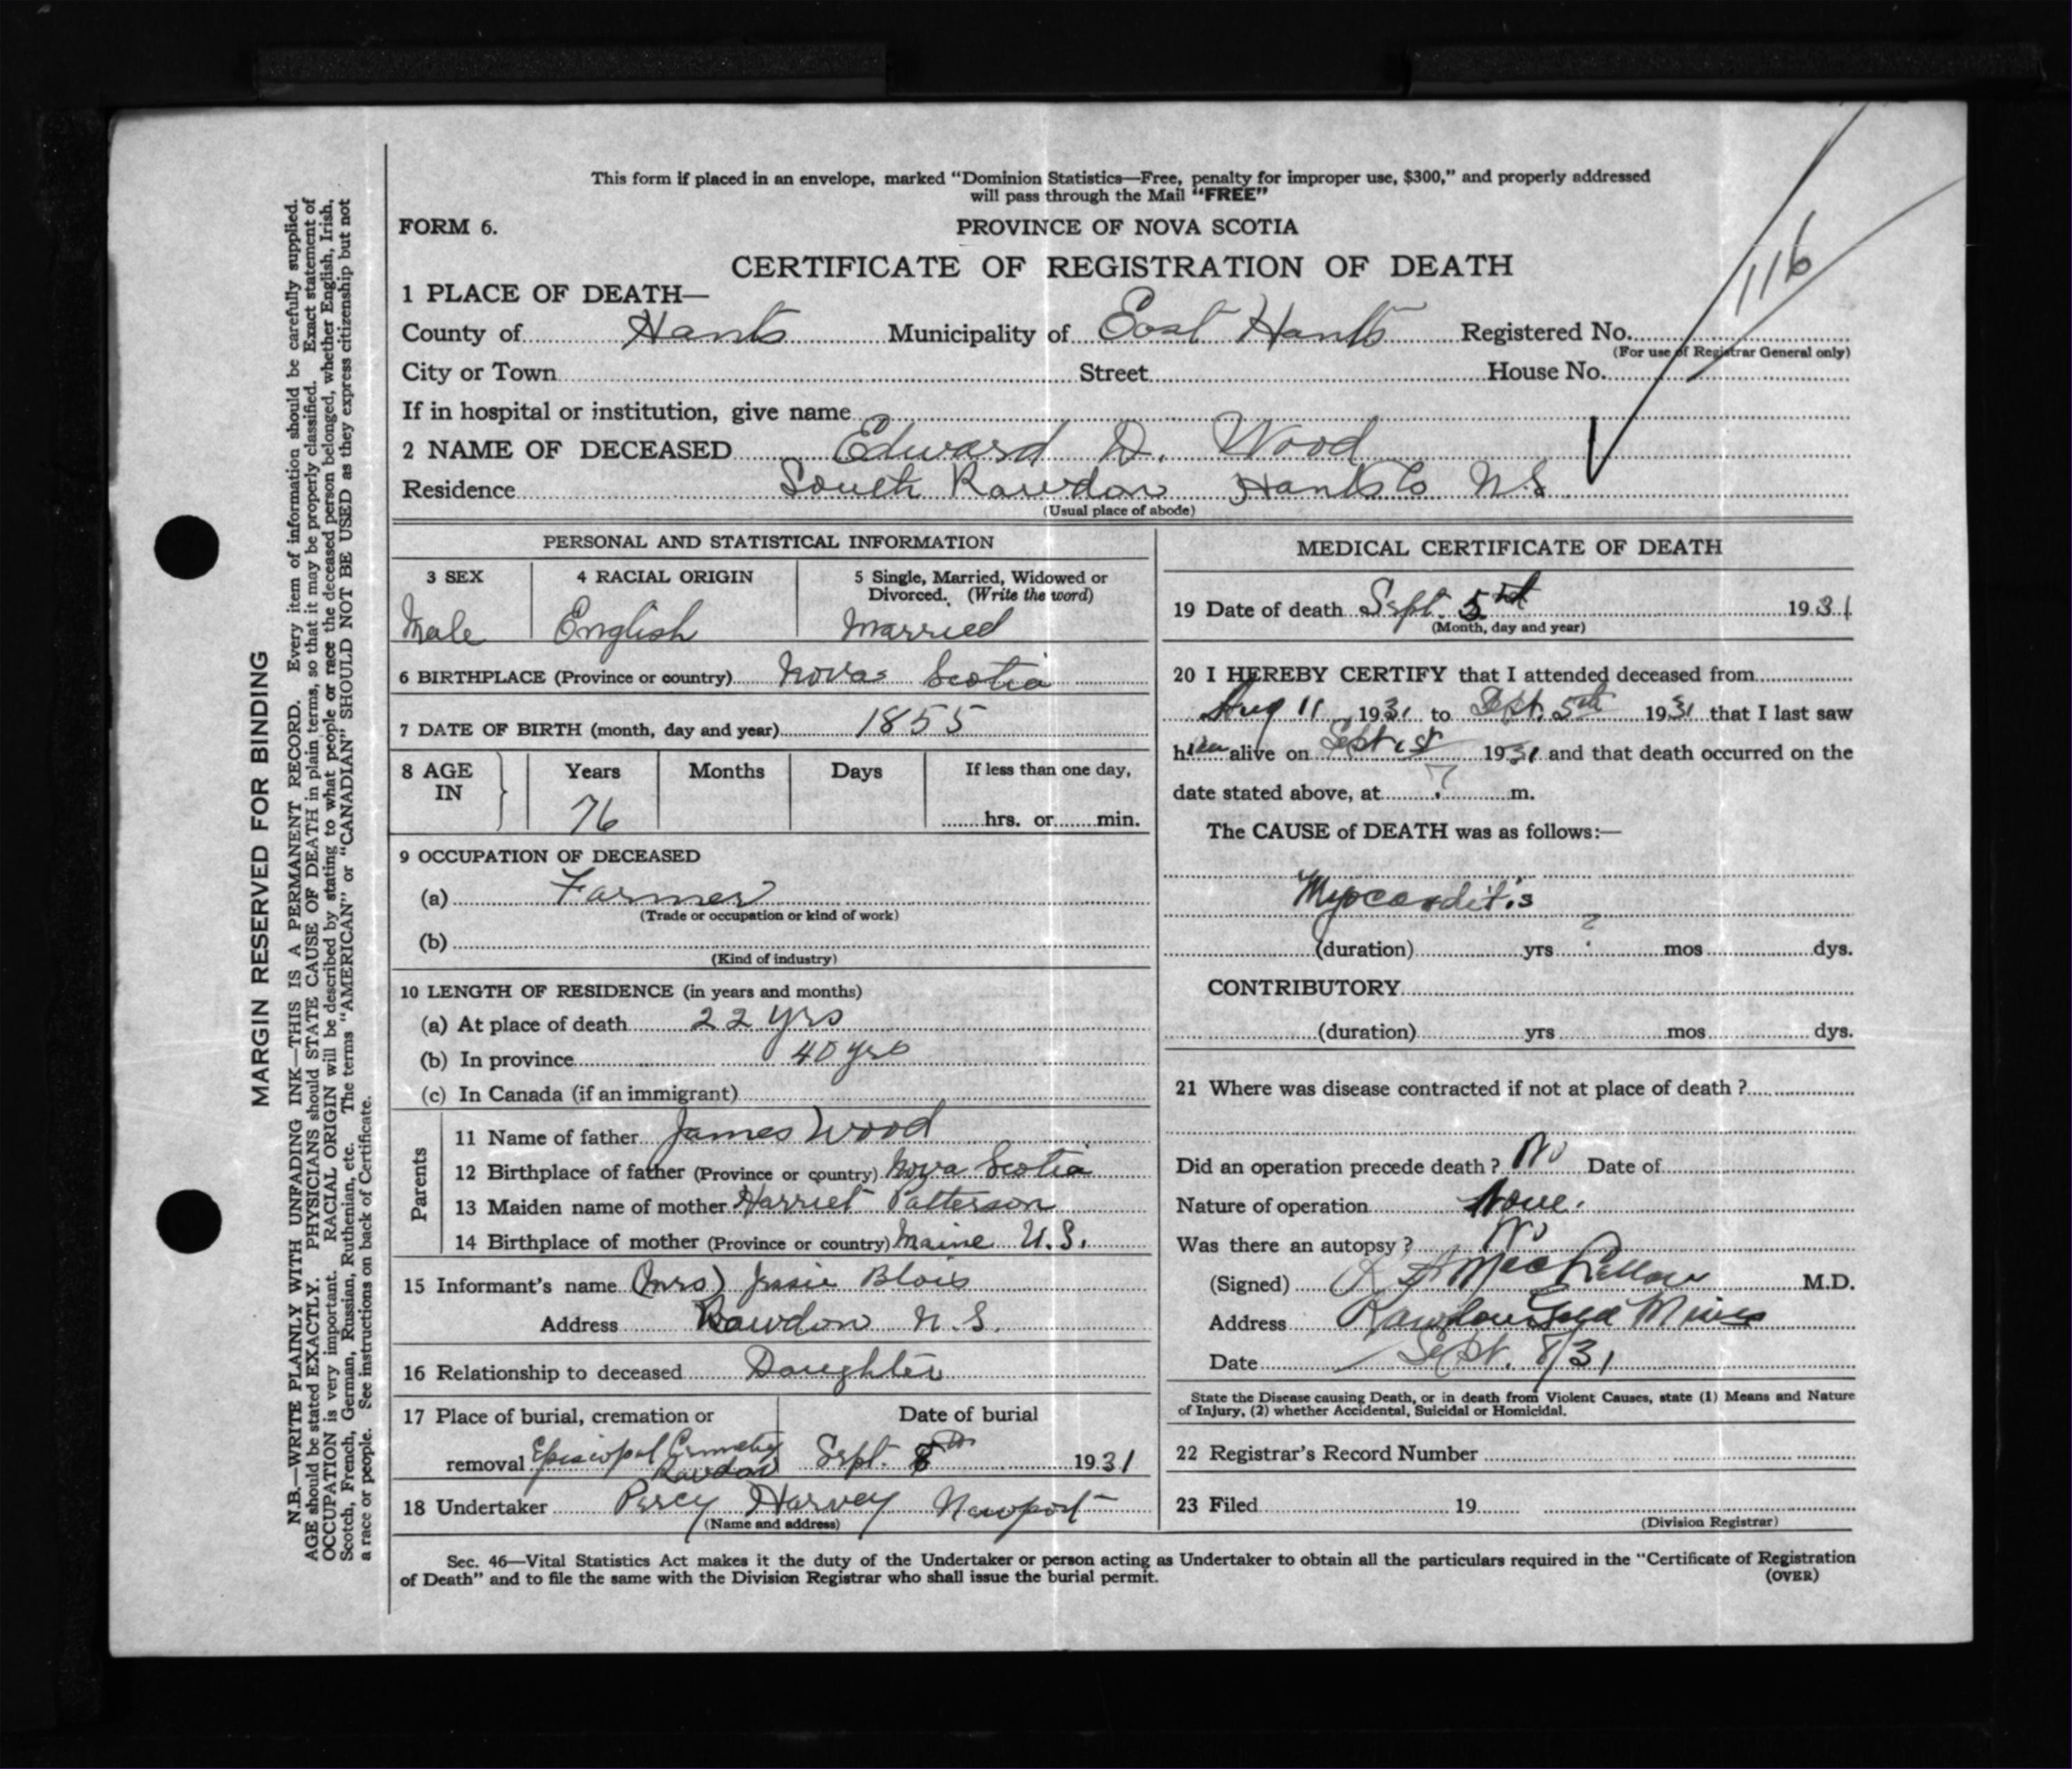 This form if placed in an envelope, marked "Dominion Statistics—Free, penalty for improper use, $300," and properly addressed
will pass through the Mail "FREE"
FORM 6.
PROVINCE OF NOVA SCOTIA
116
CERTIFICATE OF REGISTRATION OF DEATH
1 PLACE OF DEATH—
County of Hants Municipality of East Hants Registered No.
(For use of Registrar General only)
City or Town Street House No.
If in hospital or institution, give name
2 NAME OF DECEASED Edward D. Wood
Residence South Rawdon Hants Co N.S.
(Usual place of abode)
PERSONAL AND STATISTICAL INFORMATION
3 SEX 4 RACIAL ORIGIN 5 Single, Married, Widowed or
Divorced. (Write the word)
Male English Married
6 BIRTHPLACE (Province or country) Nova Scotia
7 DATE OF BIRTH (month, day and year) 1855
8 AGE Years Months Days If less than one day,
IN
76 hrs. or min.
9 OCCUPATION OF DECEASED
(a) Farmer
(Trade or occupation or kind of work)
(b)
(Kind of industry)
10 LENGTH OF RESIDENCE (in years and months)
(a) At place of death 22 yrs
(b) In province 40 yrs
(c) In Canada (if an immigrant)
Parents
11 Name of father James Wood
12 Birthplace of father (Province or country) Nova Scotia
13 Maiden name of mother Harriet Patterson
14 Birthplace of mother (Province or country) Maine U.S.
15 Informant's name (Mrs) Jessie Blois
Address Rawdon N.S.
16 Relationship to deceased Daughter
17 Place of burial, cremation or Date of burial
removal Episcopal Cemetery Sept. 8th 1931
Rawdon
18 Undertaker Percy Harvey Newport
(Name and address)
MEDICAL CERTIFICATE OF DEATH
19 Date of death Sept. 5 1931
(Month, day and year)
20 I HEREBY CERTIFY that I attended deceased from
Aug 11 1931 to Sept. 5th 1931 that I last saw
him alive on Sept 1st 1931 and that death occurred on the
date stated above, at ? m.
The CAUSE of DEATH was as follows:—
Myocarditis
(duration) yrs ? mos dys.
CONTRIBUTORY
(duration) yrs mos dys.
21 Where was disease contracted if not at place of death ?
Did an operation precede death ? No Date of
Nature of operation None.
Was there an autopsy ? No
(Signed) M.D.
Address Rawdon Gold Mines
Date Sept. 8/31
State the Disease causing Death, or in death from Violent Causes, state (1) Means and Nature
of Injury, (2) whether Accidental, Suicidal or Homicidal.
22 Registrar's Record Number
23 Filed 19
(Division Registrar)
Sec. 46—Vital Statistics Act makes it the duty of the Undertaker or person acting as Undertaker to obtain all the particulars required in the "Certificate of Registration
of Death" and to file the same with the Division Registrar who shall issue the burial permit. (OVER)
MARGIN RESERVED FOR BINDING
N.B.—WRITE PLAINLY WITH UNFADING INK—THIS IS A PERMANENT RECORD. Every item of information should be carefully supplied.
AGE should be stated EXACTLY. PHYSICIANS should STATE CAUSE OF DEATH in plain terms, so that it may be properly classified. Exact statement of
OCCUPATION is very important. RACIAL ORIGIN will be described by stating to what people or race the deceased person belonged, whether English, Irish,
Scotch, French, German, Russian, Ruthenian, etc. The terms "AMERICAN" or "CANADIAN" SHOULD NOT BE USED as they express citizenship but not
a race or people. See instructions on back of Certificate.